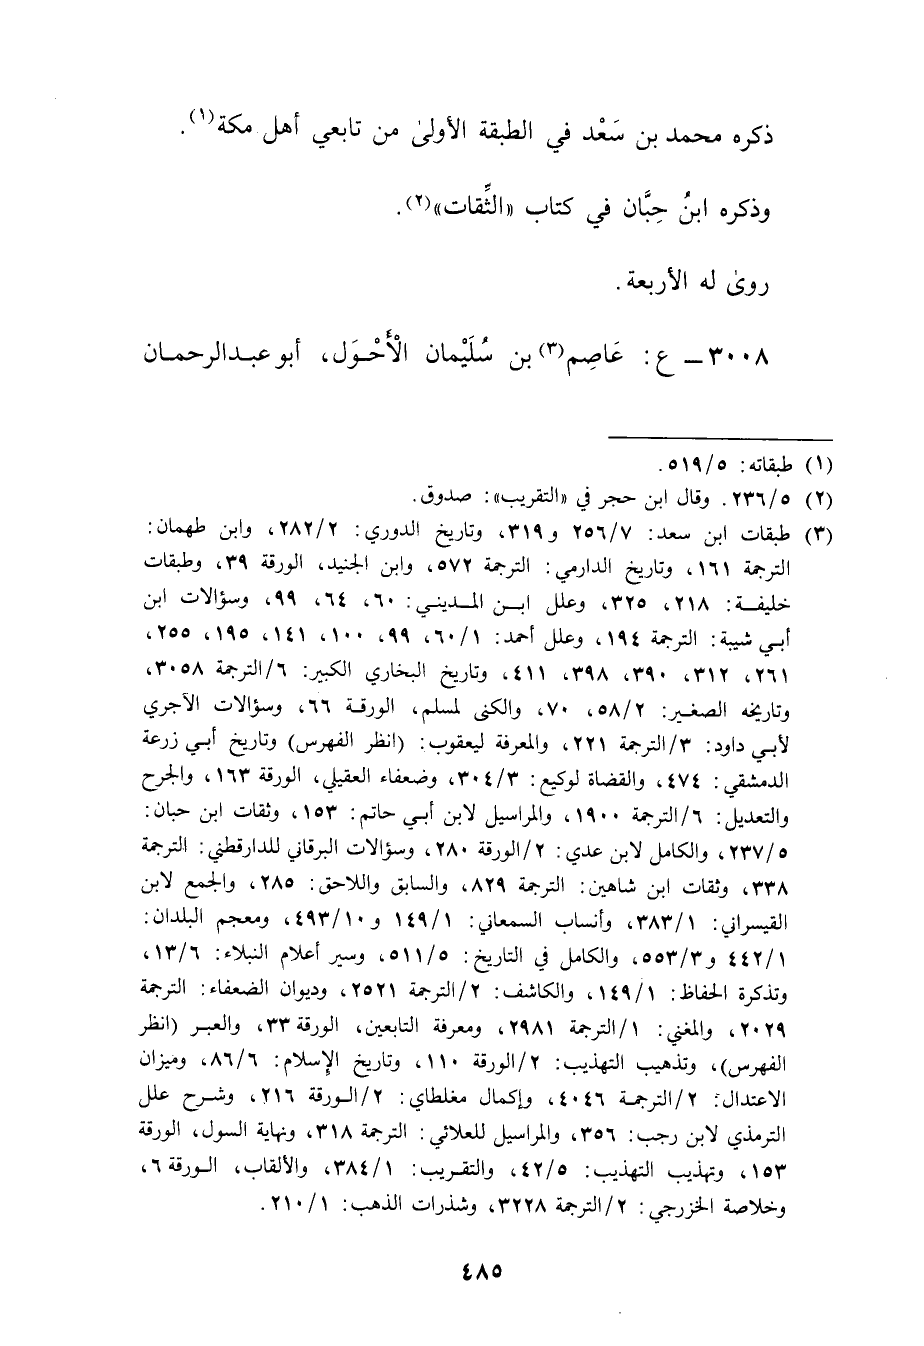 ذكره محمد بن سَعْد في الطبقة الأولىٰ من تابعي أهل مكة(١).
وذكره ابنُ حِبَّان في كتاب «الثِّقات»(٢).
روىٰ له الأربعة.
٣٠٠٨ ـ ع: عَاصِم(٣) بن سُلَيْمان الْأَحْوَل، أبو عبدالرحمان
(١) طبقاته: ٥/٥١٩.
(٢) ٥/٢٣٦. وقال ابن حجر في «التقريب»: صدوق.
(٣) طبقات ابن سعد: ٧/٢٥٦ و٣١٩، وتاريخ الدوري: ٢/٢٨٢، وابن طهمان:
الترجمة ١٦١، وتاريخ الدارمي: الترجمة ٥٧٢، وابن الجنيد، الورقة ٣٩، وطبقات
خليفة: ٢١٨، ٣٢٥، وعلل ابن المديني: ٦٠، ٦٤، ٩٩، وسؤالات ابن
أبي شيبة: الترجمة ١٩٤، وعلل أحمد: ١/٦٠، ٩٩، ١٠٠، ١٤١، ١٩٥، ٢٥٥،
٢٦١، ٣١٢، ٣٩٠، ٣٩٨، ٤١١، وتاريخ البخاري الكبير: ٦/الترجمة ٣٠٥٨،
وتاريخه الصغير: ٢/٥٨، ٧٠، والكنى لمسلم، الورقة ٦٦، وسؤالات الآجري
لأبي داود: ٣/الترجمة ٢٢١، والمعرفة ليعقوب: (انظر الفهرس) وتاريخ أبي زرعة
الدمشقي: ٤٧٤، والقضاة لوكيع: ٣/٣٠٤، وضعفاء العقيلي، الورقة ١٦٣، والجرح
والتعديل: ٦/الترجمة ١٩٠٠، والمراسيل لابن أبي حاتم: ١٥٣، وثقات ابن حبان:
٥/٢٣٧، والكامل لابن عدي: ٢/الورقة ٢٨٠، وسؤالات البرقاني للدارقطني: الترجمة
٣٣٨، وثقات ابن شاهين: الترجمة ٨٢٩، والسابق واللاحق: ٢٨٥، والجمع لابن
القيسراني: ١/٣٨٣، وأنساب السمعاني: ١/١٤٩ و١٠/٤٩٣، ومعجم البلدان:
١/٤٤٢ و٣/٥٥٣، والكامل في التاريخ: ٥/٥١١، وسير أعلام النبلاء: ٦/١٣،
وتذكرة الحفاظ: ١/١٤٩، والكاشف: ٢/الترجمة ٢٥٢١، وديوان الضعفاء: الترجمة
٢٠٢٩، والمغني: ١/الترجمة ٢٩٨١، ومعرفة التابعين، الورقة ٣٣، والعبر (انظر
الفهرس)، وتذهيب التهذيب: ٢/الورقة ١١٠، وتاريخ الإسلام: ٦/٨٦، وميزان
الاعتدال: ٢/الترجمة ٤٠٤٦، وإكمال مغلطاي: ٢/الورقة ٢١٦، وشرح علل
الترمذي لابن رجب: ٣٥٦، والمراسيل للعلائي: الترجمة ٣١٨، ونهاية السول، الورقة
١٥٣، وتهذيب التهذيب: ٥/٤٢، والتقريب: ١/٣٨٤، والألقاب، الورقة ٦،
وخلاصة الخزرجي: ٢/الترجمة ٣٢٢٨، وشذرات الذهب: ١/٢١٠.
٤٨٥